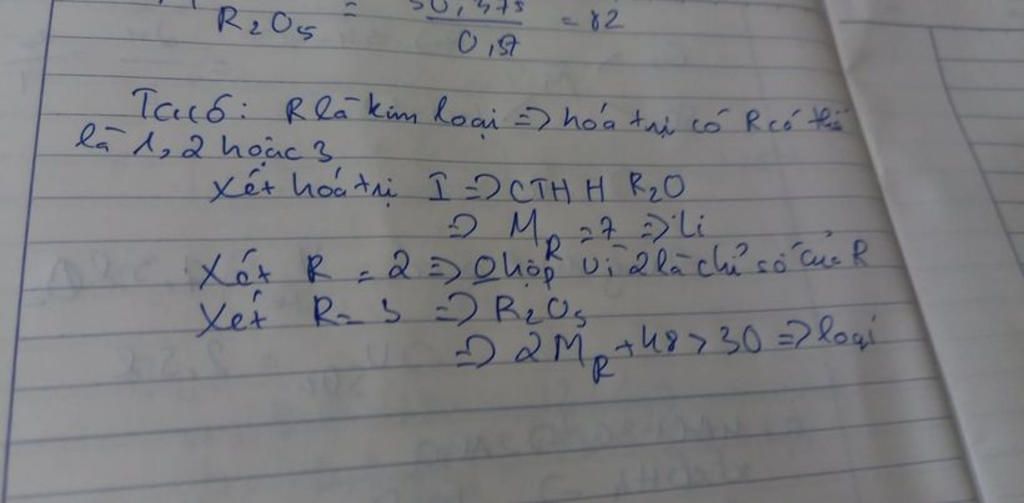 R2O5 = 50,375 / 0,57 = 82
TCu6: R là kim loại => hoá trị có R có thể
là 1, 2 hoặc 3
Xét hoá trị I => CTHH R2O
=> MR = 7 => Li
Xét R = 2 => 0 hợp vì 2 là chỉ số của R
Xét R = 3 => R2O3
=> 2MR + 48 > 30 => loại